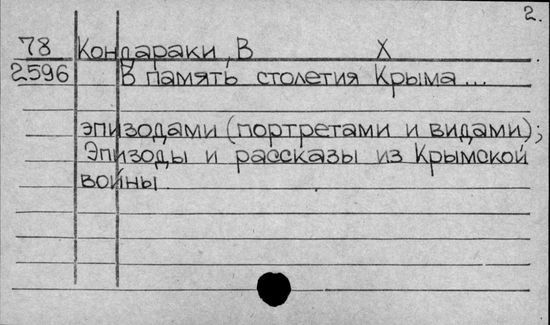 2.
78 Кондараки, В Х
2596 В память столетия Крыма...
эпизодами (портретами и видами);
Эпизоды и рассказы из Крымской
войны